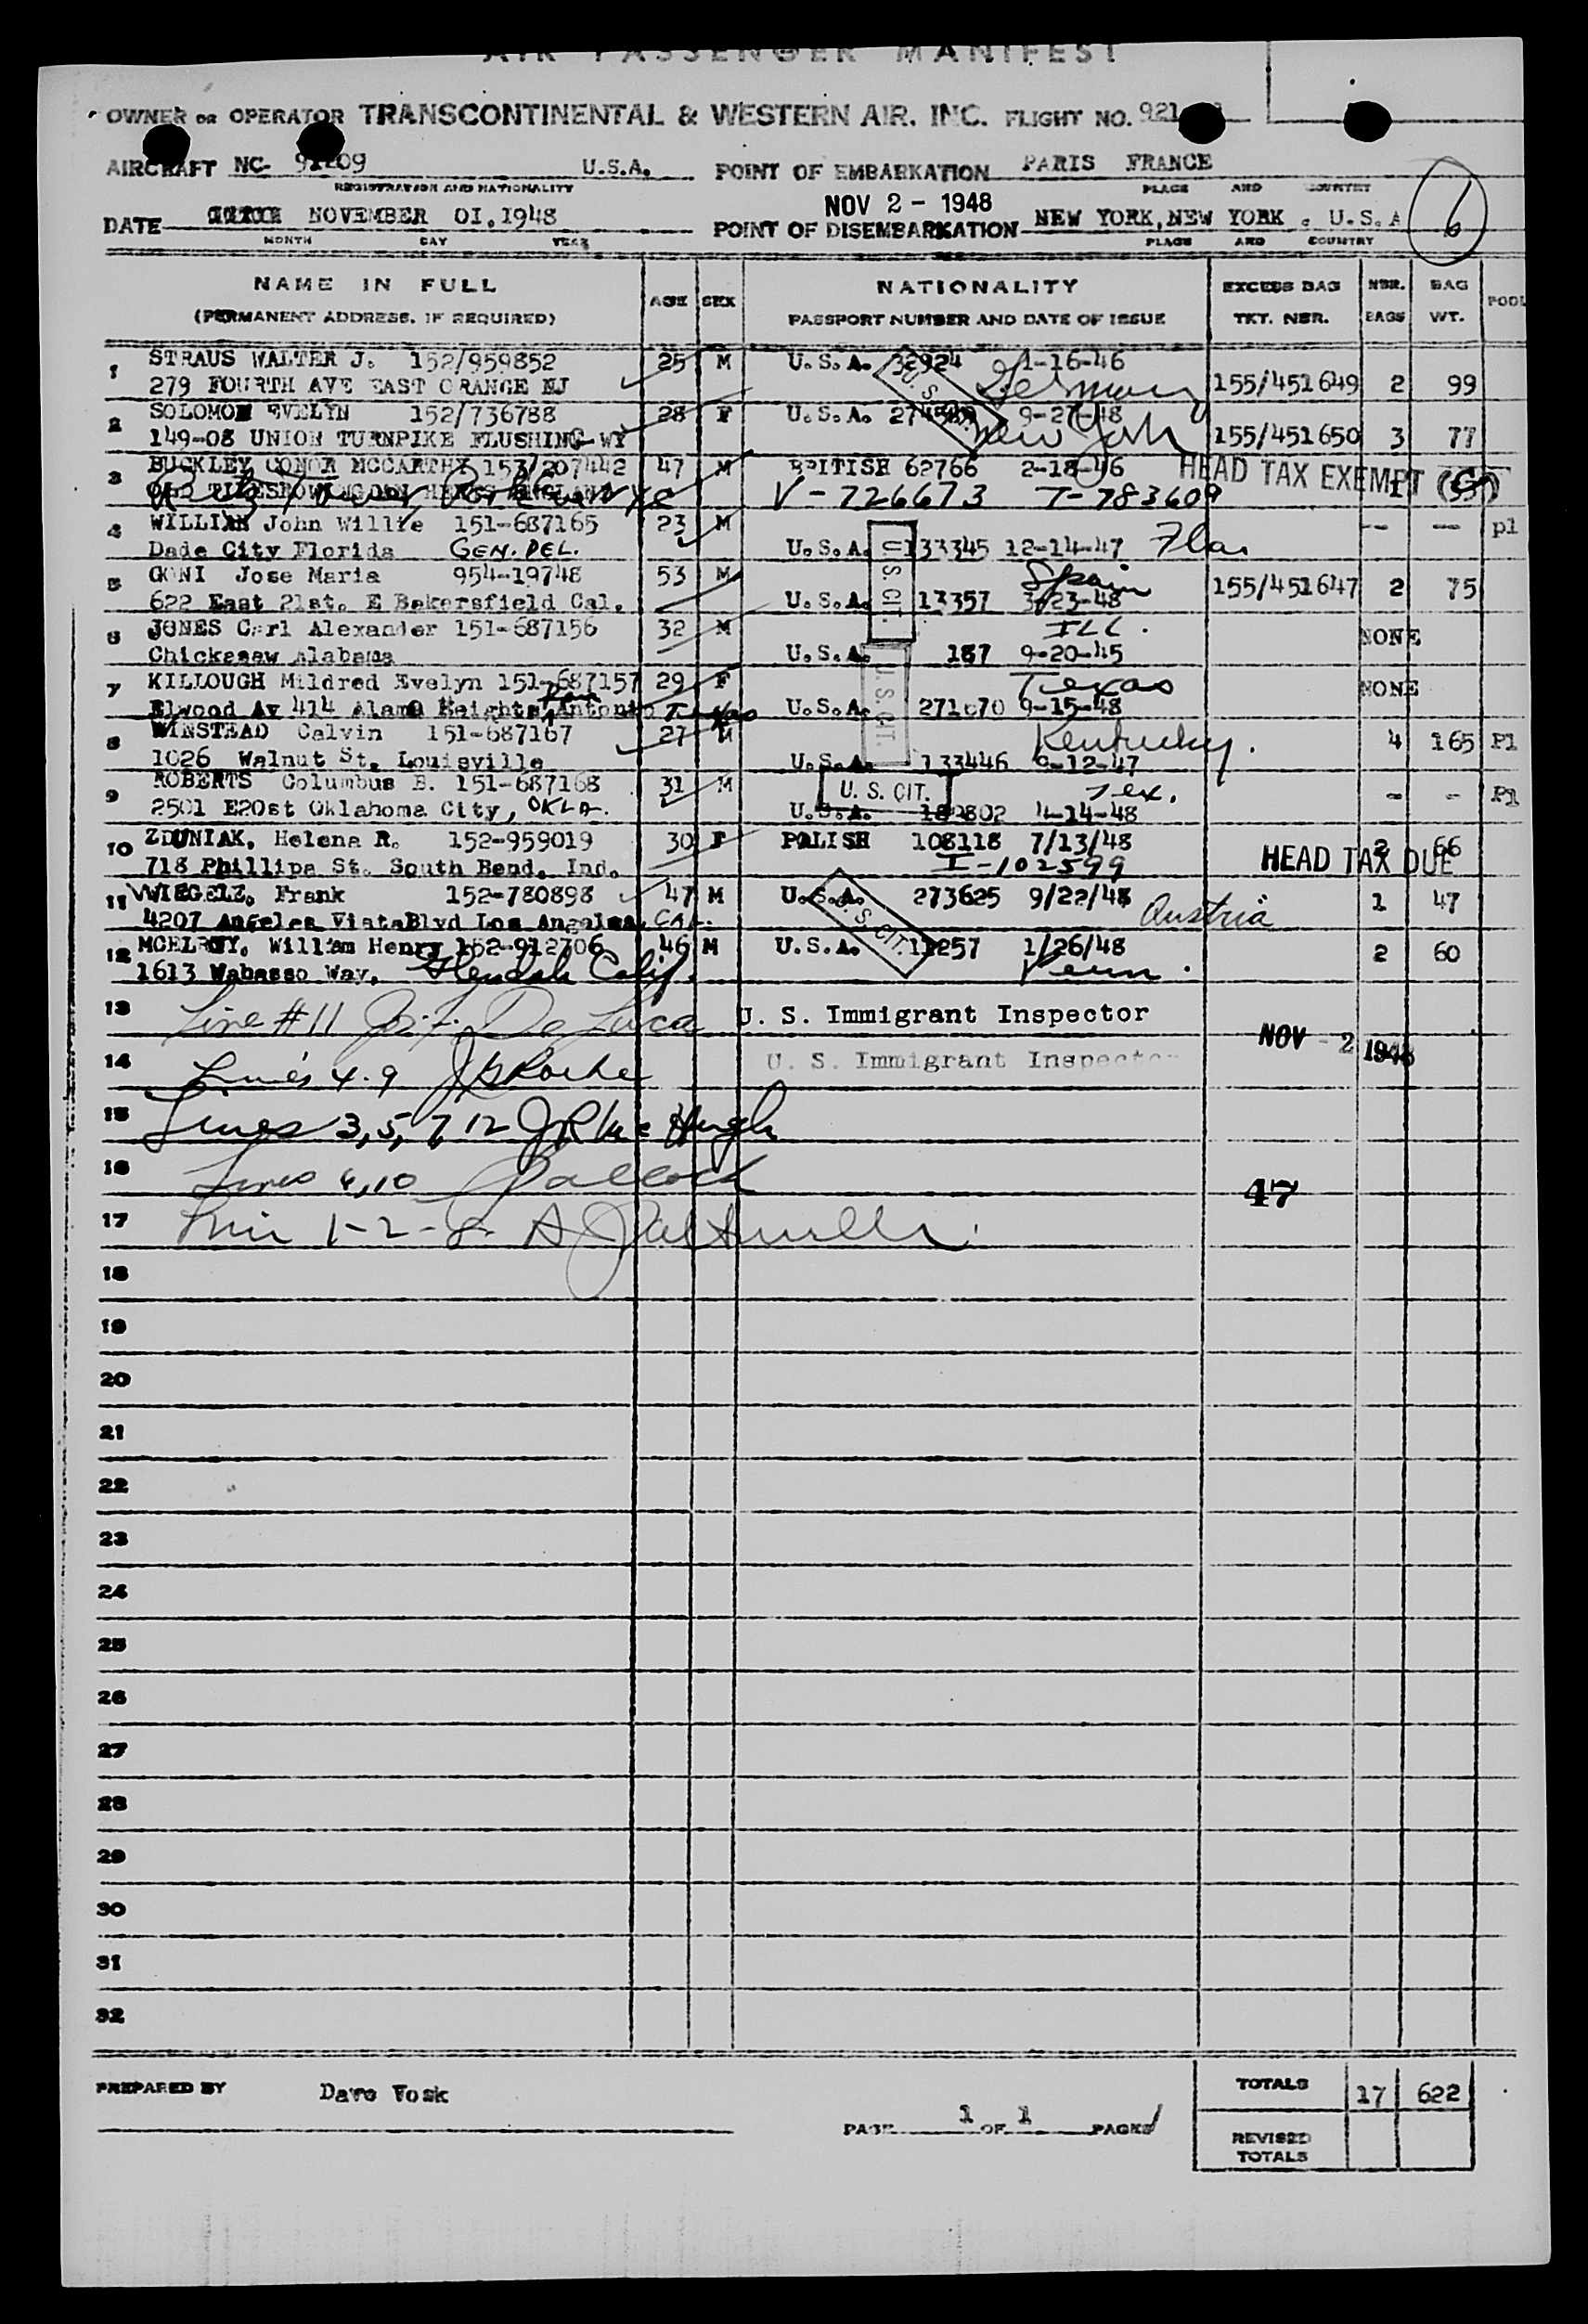 AIR PASSENGER MANIFEST
OWNER OR OPERATOR TRANSCONTINENTAL & WESTERN AIR, INC. FLIGHT NO. 921
AIRCRAFT NC- U.S.A. POINT OF EMBARKATION PARIS FRANCE
REGISTRATION AND NATIONALITY PLACE AND COUNTRY
NOV 2 - 1948
DATE NOVEMBER 01.1948 POINT OF DISEMBARKATION NEW YORK,NEW YORK . U.S.A 6
MONTH DAY YEAR PLACE AND COUNTRY
NAME IN FULL AGE SEX NATIONALITY EXCESS BAG NBR. BAG POOL
(PERMANENT ADDRESS, IF REQUIRED) PASSPORT NUMBER AND DATE OF ISSUE TKT. NBR. BAGS WT.
1 STRAUS WALTER J. 152/959852 25 M U.S.A. 32924 1-16-46
279 FOURTH AVE EAST ORANGE NJ U. S. Germany 155/451649 2 99
2 SOLOMON EVELYN 152/736788 28 F U.S.A. 9-27-48
149-08 UNION TURNPIKE FLUSHING NY New York 155/451650 3 77
3 BUCKLEY CONOR MCCARTHY 153/207442 47 M BRITISH 62766 2-18-46 HEAD TAX EXEMPT
V-726673 T-783609
4 WILLIAM John Willie 151-687165 23 M -- -- pl
Dade City Florida GEN. DEL. U.S.A. 133345 12-14-47 Fla.
U.S. CIT.
5 GONI Jose Maria 954-19748 53 M Spain 155/451647 2 75
622 East 21st. E Bakersfield Cal. U.S.A. 13357 3/23-48
6 JONES Carl Alexander 151-687156 32 M ILL. NONE
Chickasaw Alabama U.S.A. 187 9-20-45
U.S. CIT.
7 KILLOUGH Mildred Evelyn 151-687157 29 F Texas NONE
Elwood Av 414 Alamo Heights San Antonio Texas U.S.A. 271070 9-15-48
8 WINSTEAD Calvin 151-687167 27 M Kentucky. 4 165 Pl
1026 Walnut St. Louisville U.S.A. 133446 9-12-47
9 ROBERTS Columbus B. 151-687168 31 M U. S. CIT. Tex. - - Pl
2501 E20st Oklahoma City, OKLA. U.S.A. 4-14-48
10 ZDUNIAK, Helena R. 152-959019 30 F POLISH 108118 7/13/48 2 66
718 Phillipa St. South Bend. Ind. I-102599 HEAD TAX DUE
11 WIEGELE, Frank 152-780898 47 M U.S.A. 273625 9/22/48 1 47
4207 Angeles VistaBlvd Los Angeles, CAL. U. S. CIT. Austria
12 MCELROY, William Henry 152-912706 46 M U.S.A. 11257 1/26/48 2 60
1613 Wabasso Way, Glendale Calif. Penn.
13 Line #11 De Luca U. S. Immigrant Inspector
NOV - 2 1948
14 Lines 4-9 J Roche U. S. Immigrant Inspector
15 Lines 3, 5, 7, 12 J R Mc Hugh
16 Lines 6, 10
47
17 1-2-8
18
19
20
21
22
23
24
25
26
27
28
29
30
31
32
PREPARED BY Dave Vosk TOTALS 17 622
PAGE 1 OF 1 PAGES
REVISED
TOTALS